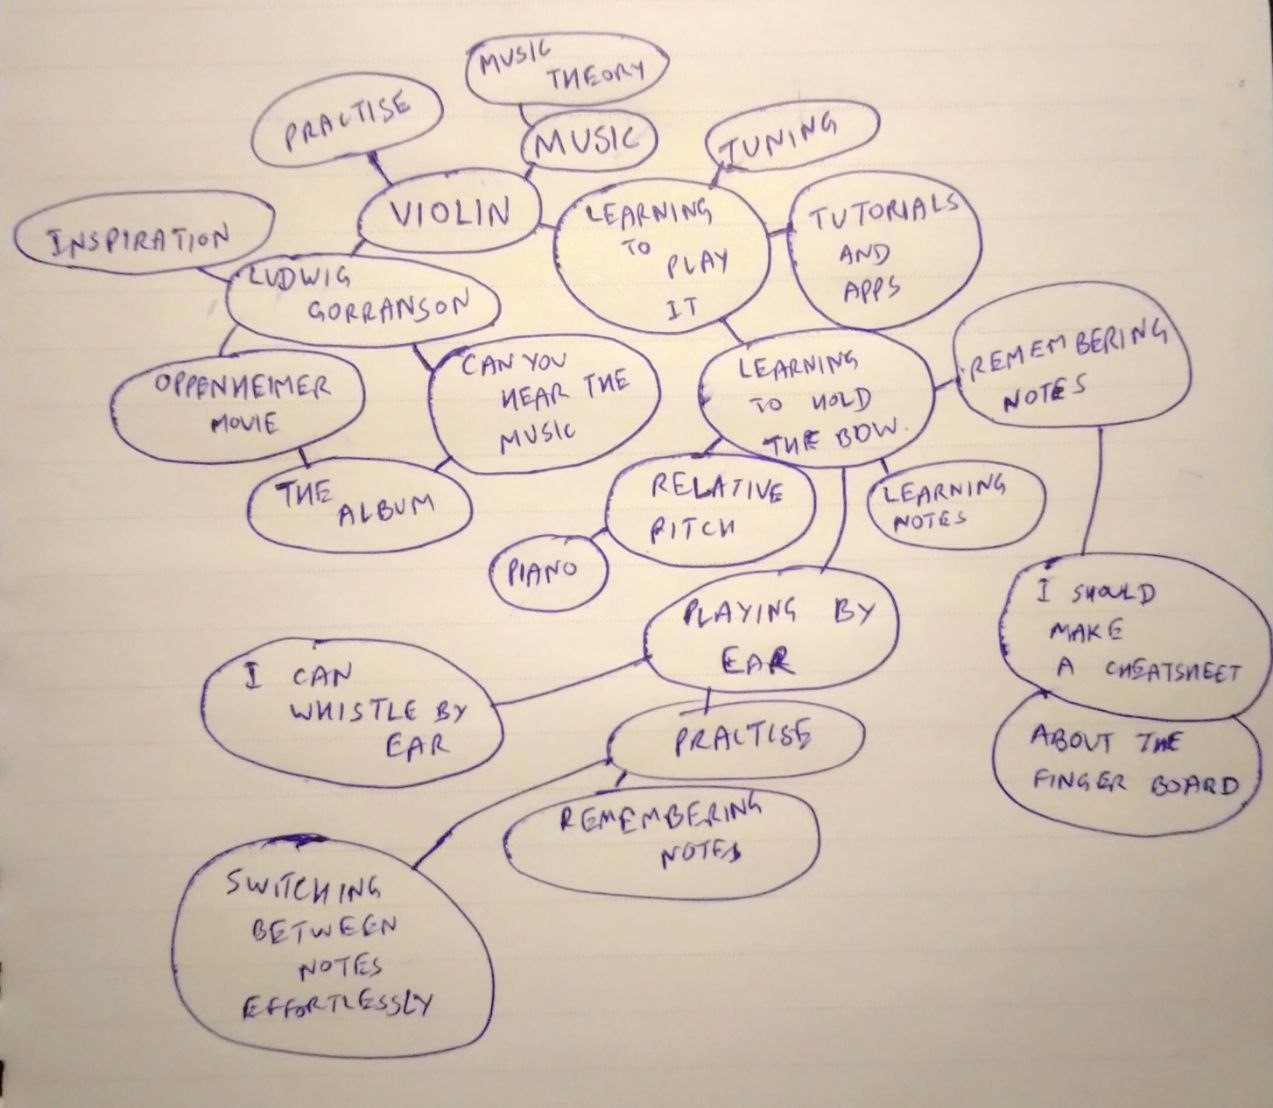 MUSIC
THEORY
PRACTISE
MUSIC
TUNING
VIOLIN
LEARNING
TO
PLAY
IT
TUTORIALS
AND
APPS
INSPIRATION
LUDWIG
GORRANSON
OPPENHEIMER
MOVIE
CAN YOU
HEAR THE
MUSIC
THE
ALBUM
LEARNING
TO HOLD
THE BOW.
REMEMBERING
NOTES
RELATIVE
PITCH
LEARNING
NOTES
PIANO
PLAYING BY
EAR
I SHOULD
MAKE
A CHEATSHEET
ABOUT THE
FINGER BOARD
I CAN
WHISTLE BY
EAR
PRACTISE
REMEMBERING
NOTES
SWITCHING
BETWEEN
NOTES
EFFORTLESSLY